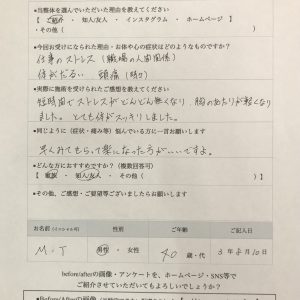 ●当整体を選んでいただいた理由を教えてください
【 ご紹介 ・ 知人/友人 ・ インスタグラム ・ ホームページ 】
・その他（
●今回お受けになられた理由・お体や心の症状はどのようなものですか？
仕事のストレス（職場の人間関係）
体がだるい、頭痛（時々）
●実際に施術を受けられたご感想を教えてください
短時間でストレスがどんどん無くなり、胸のあたりが軽くなり
ました。とても体がスッキリしました。
●同じように（症状・痛み等）悩んでいる方に一言お願いします
早くみてもらって楽になった方がいいですよ。
●どんな方におすすめですか？（複数回答可）
【 家族 ・ 知人/友人 ・ その他（
●その他、ご感想・ご要望等ございましたらお願いします
お名前（イニシャル可） 性別 ご年齢 ご記入日
M.T 男性 ・ 女性 40 歳・代 3年8月10日
before/afterの画像・アンケートを、ホームページ・SNS等で
ご紹介させていただいてもよろしいでしょうか？